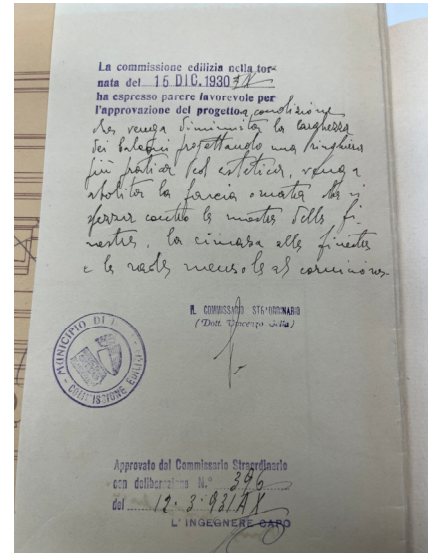 La commissione edilizia nella tor-
nata del 15 DIC. 1930
ha espresso parere favorevole per
l'approvazione del progetto a condizione
che venga diminuita la larghezza
dei balconi progettando una ringhiera
più pratica ed estetica, venga
abolita la fascia ornata che si
spezza contro le mostre delle fi-
nestre, la cimasa alle finestre
e le rade mensole al cornicione.
IL COMMISSARIO STRAORDINARIO
(Dott. Vincenzo)
MUNICIPIO DI
COMMISSIONE EDILIZIA
Approvato dal Commissario Straordinario
con deliberazione N.° 396
del 12.3.931 AX
L'INGEGNERE CAPO